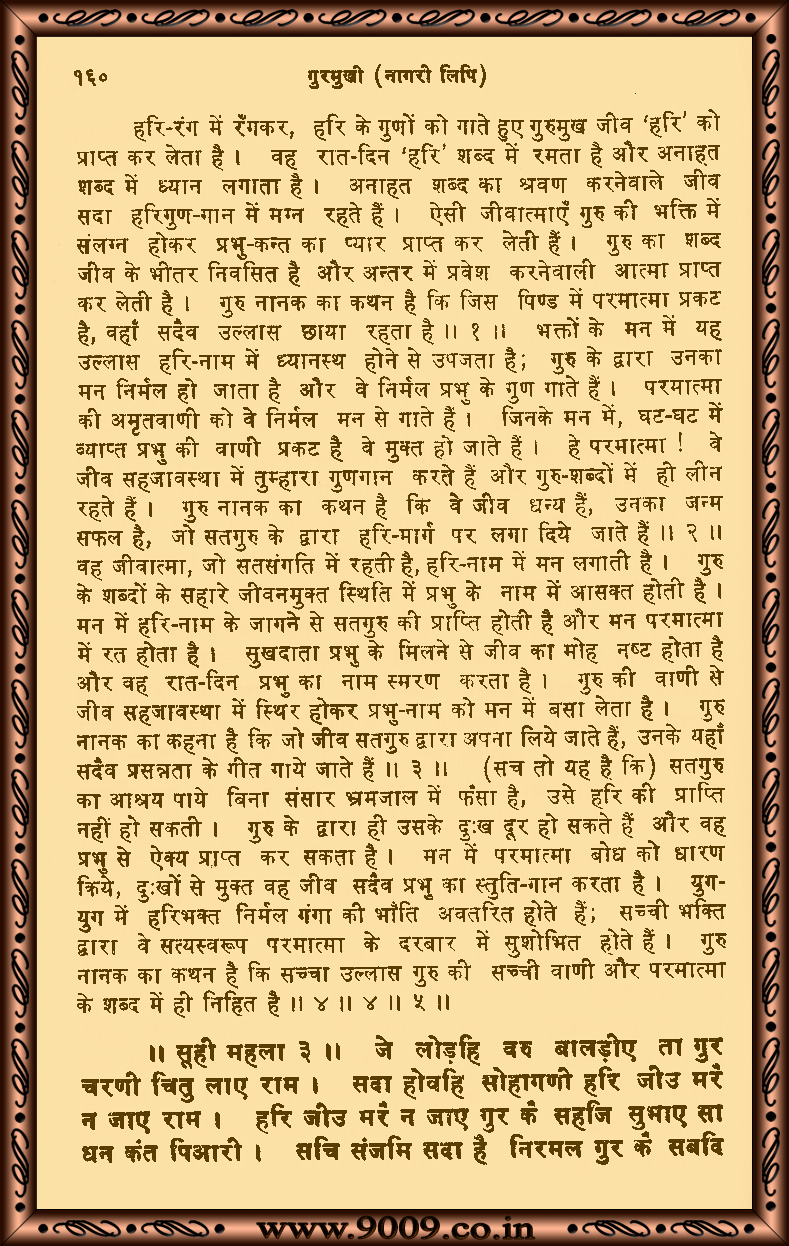 १६० गुरमुखी (नागरी लिपि)
हरि-रंग में रँगकर, हरि के गुणों को गाते हुए गुरुमुख जीव ‘हरि’ को
प्राप्त कर लेता है । वह रात-दिन ‘हरि’ शब्द में रमता है और अनाहत
शब्द में ध्यान लगाता है । अनाहत शब्द का श्रवण करनेवाले जीव
सदा हरिगुण-गान में मग्न रहते हैं । ऐसी जीवात्माएँ गुरु की भक्ति में
संलग्न होकर प्रभु-कन्त का प्यार प्राप्त कर लेती हैं । गुरु का शब्द
जीव के भीतर निवसित है और अन्तर में प्रवेश करनेवाली आत्मा प्राप्त
कर लेती है । गुरु नानक का कथन है कि जिस पिण्ड में परमात्मा प्रकट
है, वहाँ सदैव उल्लास छाया रहता है ।। १ ।। भक्तों के मन में यह
उल्लास हरि-नाम में ध्यानस्थ होने से उपजता है; गुरु के द्वारा उनका
मन निर्मल हो जाता है और वे निर्मल प्रभु के गुण गाते हैं । परमात्मा
की अमृतवाणी को वे निर्मल मन से गाते हैं । जिनके मन में, घट-घट में
व्याप्त प्रभु की वाणी प्रकट है वे मुक्त हो जाते हैं । हे परमात्मा ! वे
जीव सहजावस्था में तुम्हारा गुणगान करते हैं और गुरु-शब्दों में ही लीन
रहते हैं । गुरु नानक का कथन है कि वे जीव धन्य हैं, उनका जन्म
सफल है, जो सतगुरु के द्वारा हरि-मार्ग पर लगा दिये जाते हैं ।। २ ।।
वह जीवात्मा, जो सतसंगति में रहती है, हरि-नाम में मन लगाती है । गुरु
के शब्दों के सहारे जीवनमुक्त स्थिति में प्रभु के नाम में आसक्त होती है ।
मन में हरि-नाम के जागने से सतगुरु की प्राप्ति होती है और मन परमात्मा
में रत होता है । सुखदाता प्रभु के मिलने से जीव का मोह नष्ट होता है
और वह रात-दिन प्रभु का नाम स्मरण करता है । गुरु की वाणी से
जीव सहजावस्था में स्थिर होकर प्रभु-नाम को मन में बसा लेता है । गुरु
नानक का कहना है कि जो जीव सतगुरु द्वारा अपना लिये जाते हैं, उनके यहाँ
सदैव प्रसन्नता के गीत गाये जाते हैं ।। ३ ।। (सच तो यह है कि) सतगुरु
का आश्रय पाये बिना संसार भ्रमजाल में फँसा है, उसे हरि की प्राप्ति
नहीं हो सकती । गुरु के द्वारा ही उसके दुःख दूर हो सकते हैं और वह
प्रभु से ऐक्य प्राप्त कर सकता है । मन में परमात्मा बोध को धारण
किये, दुःखों से मुक्त वह जीव सदैव प्रभु का स्तुति-गान करता है । युग-
युग में हरिभक्त निर्मल गंगा की भाँति अवतरित होते हैं; सच्ची भक्ति
द्वारा वे सत्यस्वरूप परमात्मा के दरबार में सुशोभित होते हैं । गुरु
नानक का कथन है कि सच्चा उल्लास गुरु की सच्ची वाणी और परमात्मा
के शब्द में ही निहित है ।। ४ ।। ४ ।। ५ ।।
।। सूही महला ३ ।। जे लोड़हि वरु बालड़ीए ता गुर
चरणी चितु लाए राम । सदा होवहि सोहागणी हरि जीउ मरै
न जाए राम । हरि जीउ मरै न जाए गुर कै सहजि सुभाए सा
धन कंत पिआरी । सचि संजमि सदा है निरमल गुर कै सबदि
www.9009.co.in